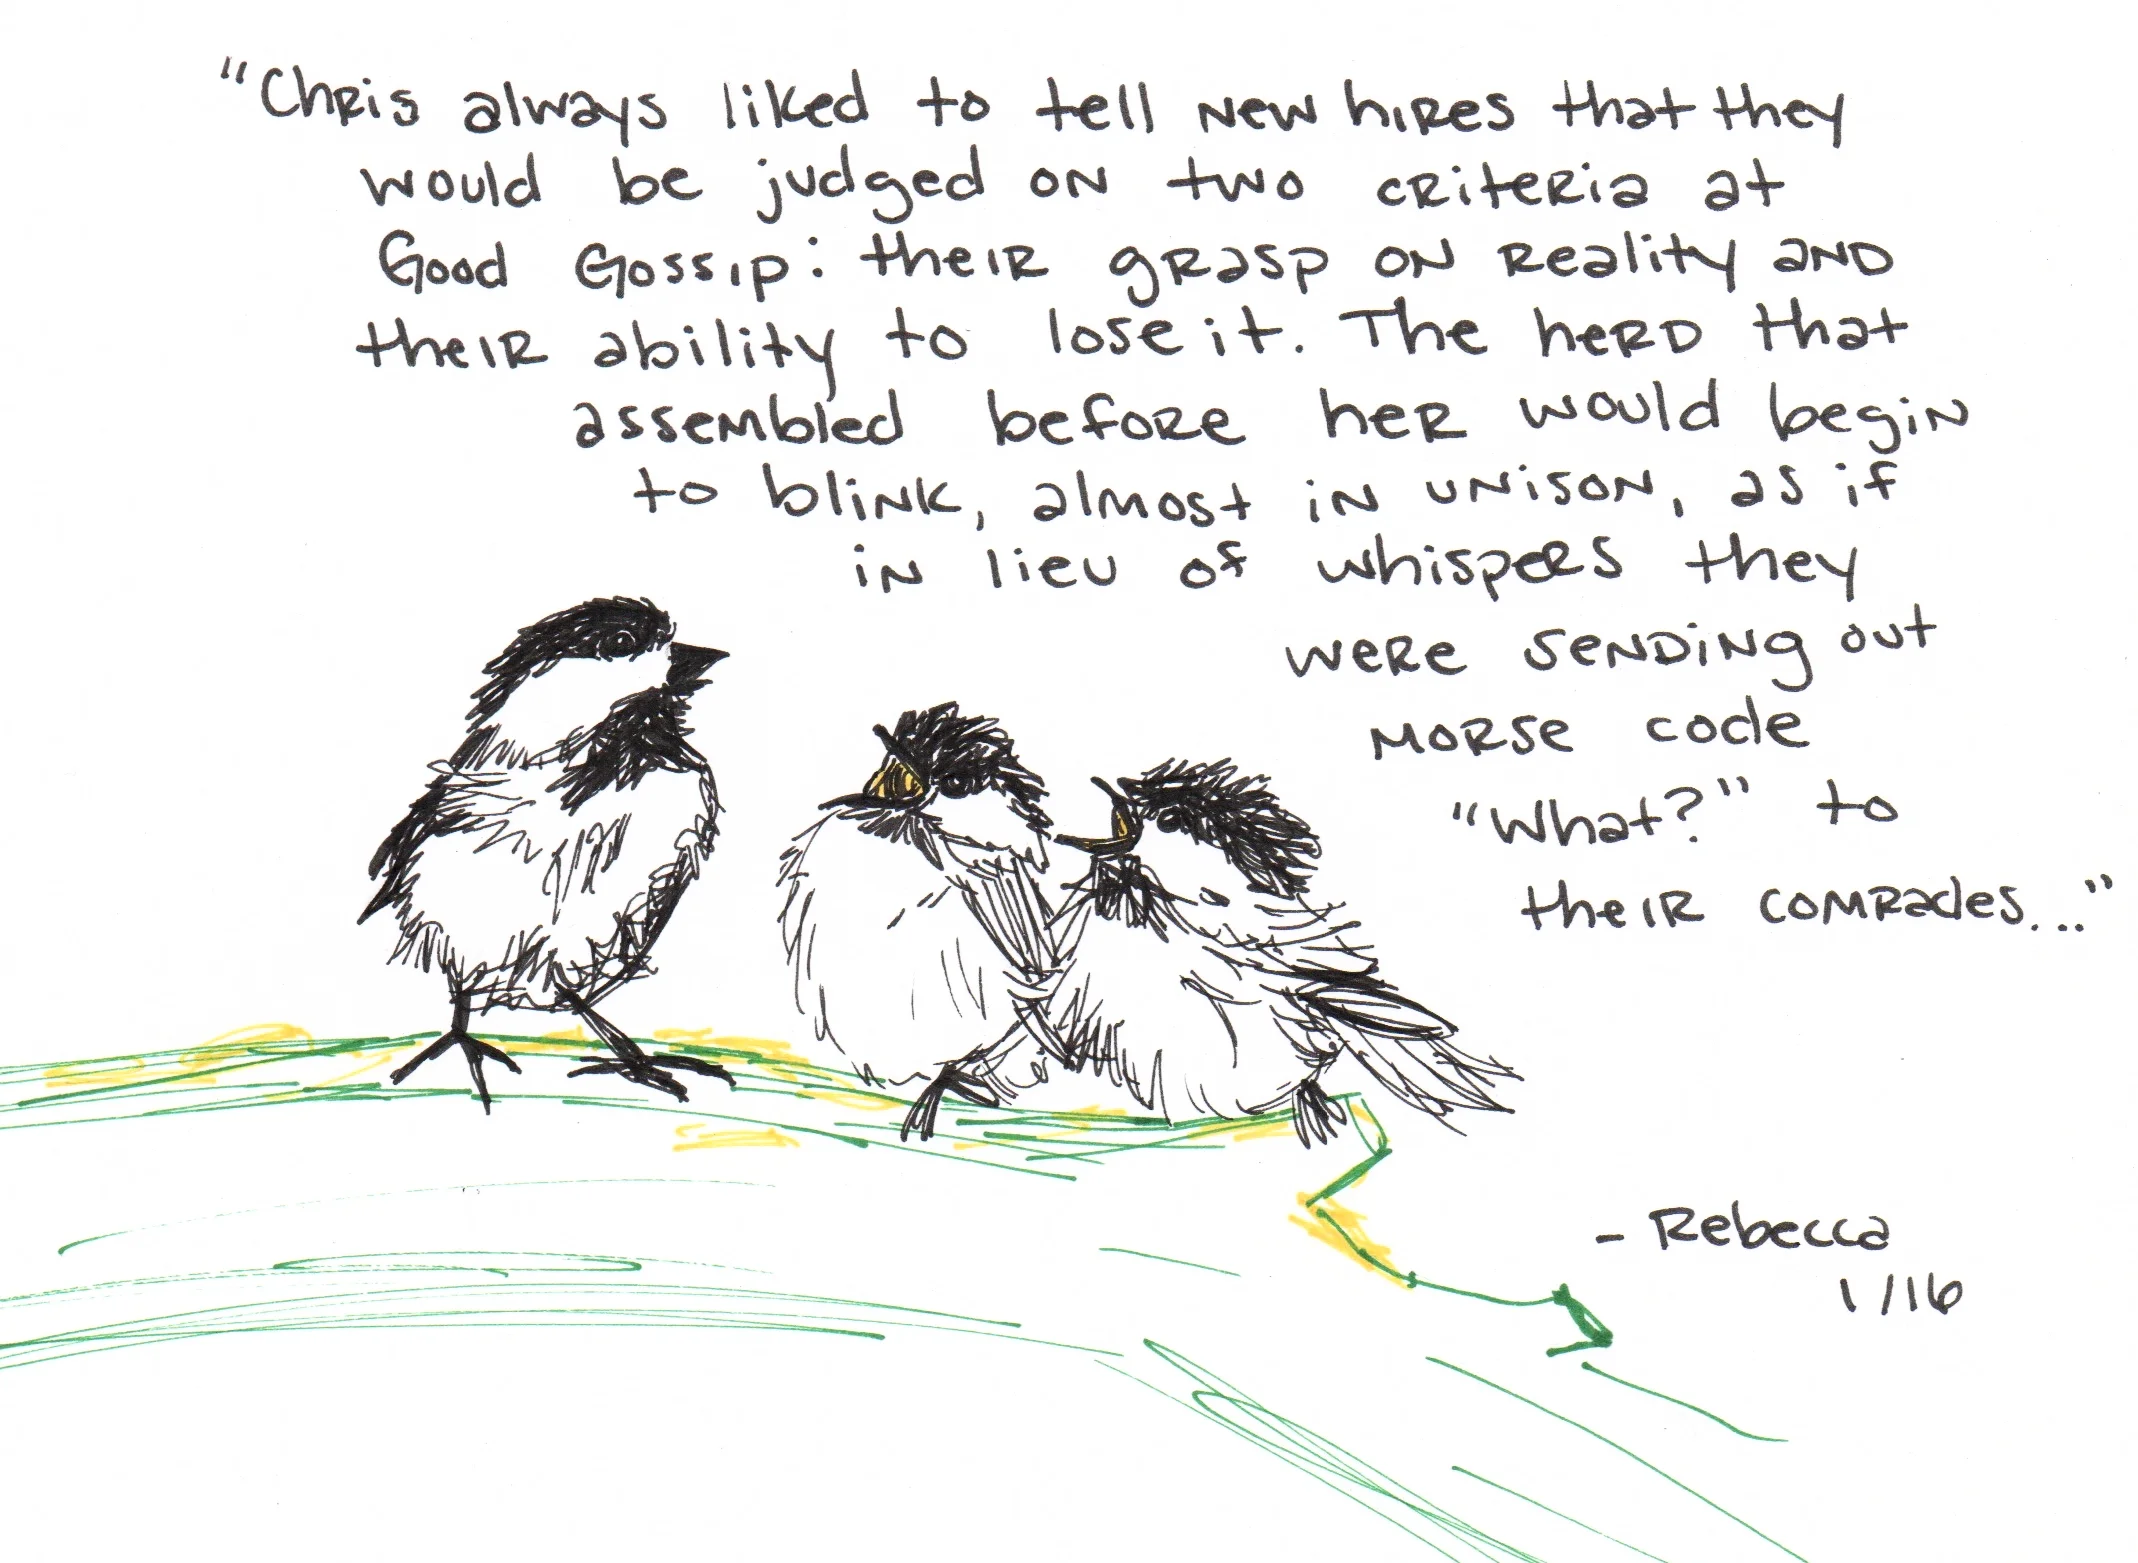 "Chris always liked to tell new hires that they
would be judged on two criteria at
Good Gossip: their grasp on reality and
their ability to lose it. The herd that
assembled before her would begin
to blink, almost in unison, as if
in lieu of whispers they
were sending out
morse code
"What?" to
their comrades..."
- Rebecca
1/16